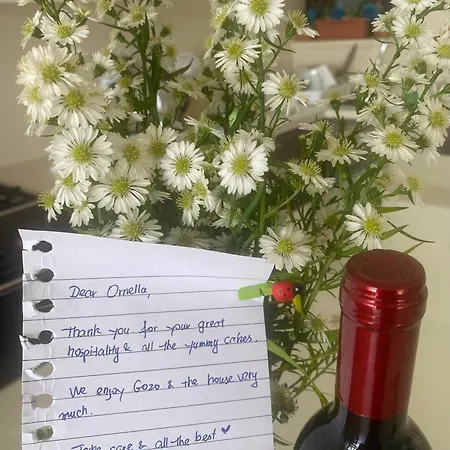 Dear Ornella,
Thank you for your great
hospitality & all the yummy cakes.
We enjoy Gozo & the house very
much.
Take care & all the best ♥